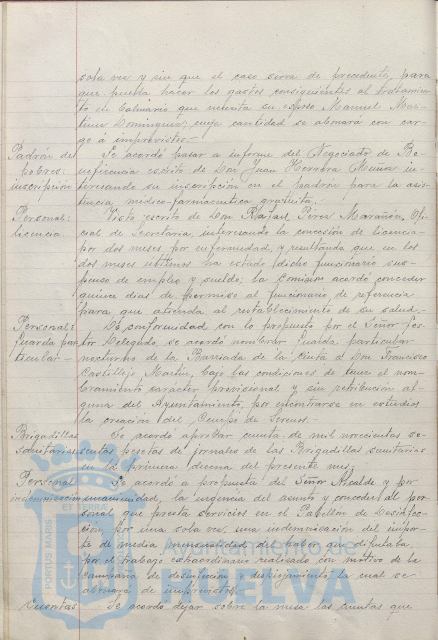 sola vez y sin que el caso sirva de precedente, para
que pueda hacer los gastos consiguientes al tratamien-
to en balneario que necesita su esposo Manuel Mar-
tinez Dominguez, cuya cantidad se abonará con car-
go á imprevistos.-
Padrón de pobres: inscripción
Se acordó pasar a informe del Negociado de Be-
neficencia escrito de Don Juan Herrera Muñoz in-
teresando su inscripción en el padrón para la asis-
tencia médico-farmaceutica gratuita.
Personal: licencia
Visto escrito de Don Rafael Pérez Marañón, Ofi-
cial de Secretaría, interesando la concesión de licencia
por dos meses por enfermedad, y resultando que en los
dos meses ultimos ha estado dicho funcionario sus-
penso de empleo y sueldo; la Comision acordó conceder
quince dias de permiso al funcionario de referencia
para que atienda al restablecimiento de su salud.
Personal: Guarda particular-
De conformidad con lo propuesto por el Señor Ges-
tor Delegado, se acordó nombrar Guarda particular
nocturno de la Barriada de la Cinta á Don Francisco
Castillejo Martin, bajo las condiciones de tener el nom-
bramiento caracter provisional y sin retribución al-
guna del Ayuntamiento, por encontrarse en estudios
la creación del Cuerpo de Serenos.
Brigadillas sanitarias
Se acordó aprobar cuenta de mil novecientas se-
sentas pesetas de jornales de las Brigadillas sanitarias
en la primera decena del presente mes.
Personal indemnización
Se acordó a propuesta del Señor Alcalde y por
unanimidad, la urgencia del asunto y conceder al per-
sonal que presta servicios en el Pabellón de Desinfec-
ción, por una sola vez, una indemnización del impor-
te de media mensualidad de haber que disfrutaba,
por el trabajo extraordinario realizado con motivo de la
campaña de desinfección y despiojamiento, la cual se
abonará de imprevistos.
Cuentas
Se acordó dejar sobre la mesa las cuentas que
PORTUS MARIS
ET
Ayuntamiento de
HUELVA